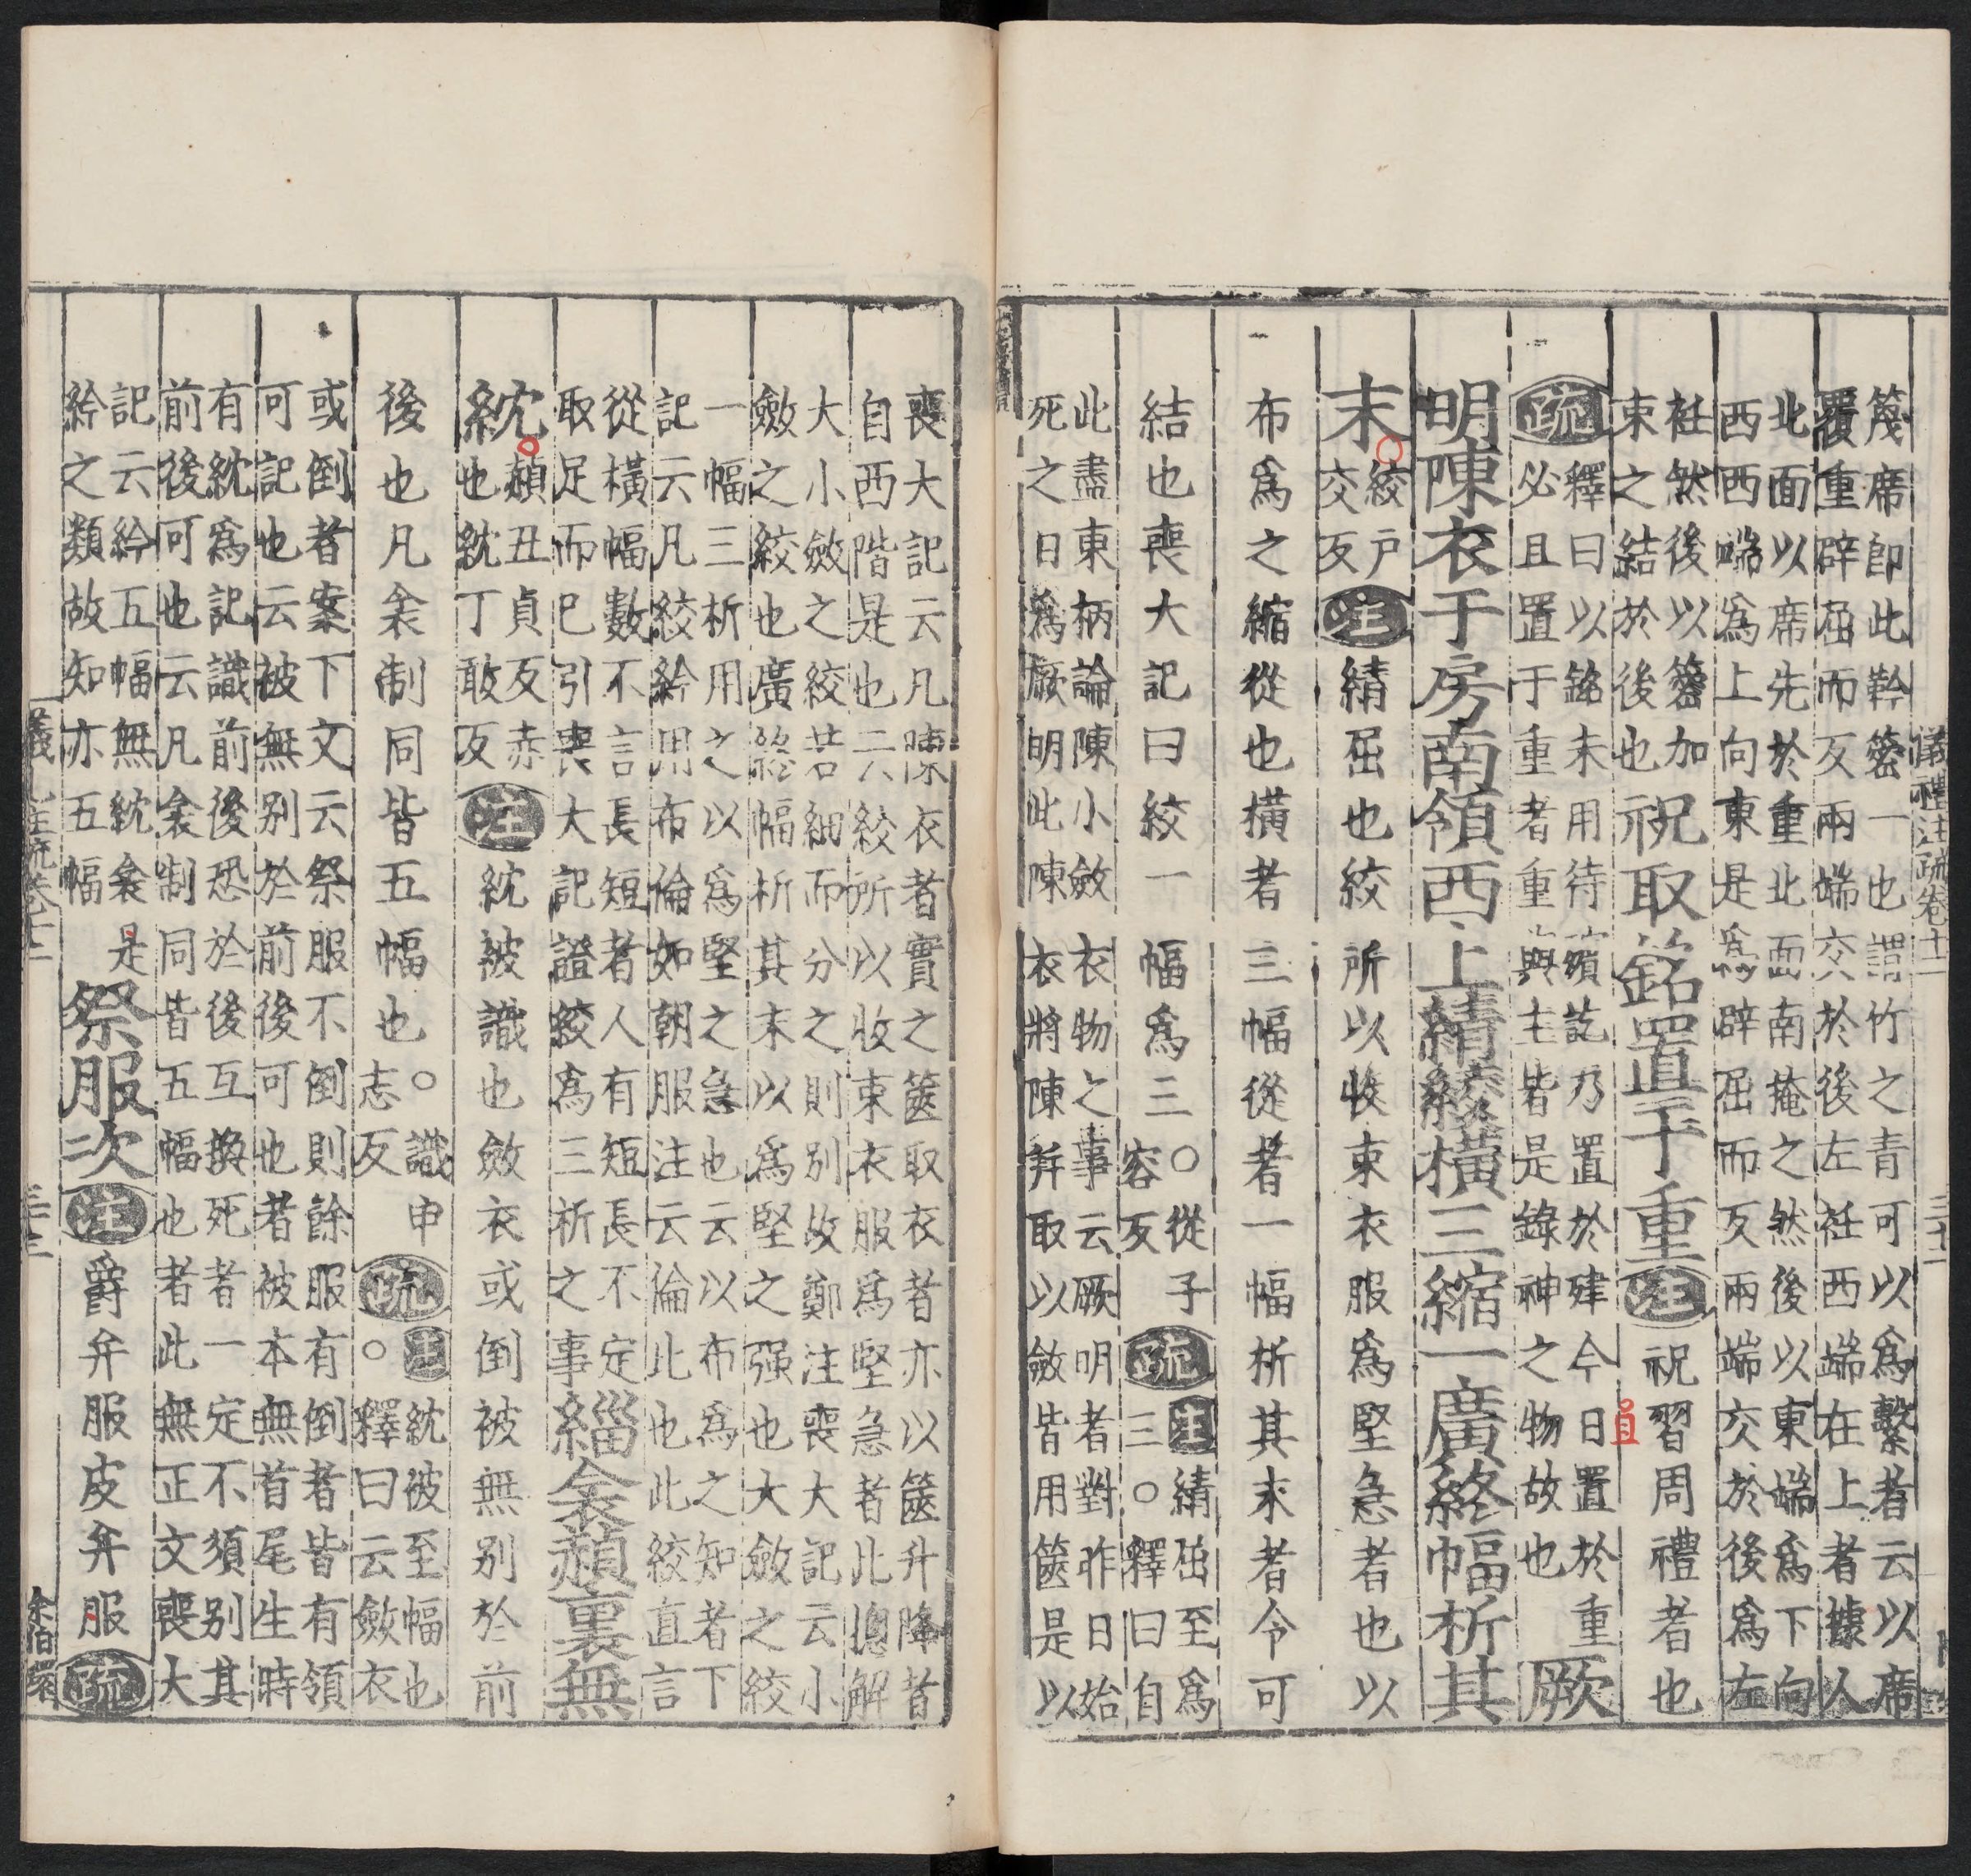 儀禮注疏卷十二
三十二
篾席即此幹簽一也謂竹之青可以爲繫者云以席
覆重辟屈而反兩端交於後左衽西端在上者據人
北面以席先於重北面南掩之然後以東端爲下向
西西端爲上向東是爲辟屈而反兩端交於後爲左
衽然後以簽加
束之結於後也
祝取銘置于重注祝習周禮者也
疏
釋曰以銘未用待殯訖乃置於肂今日置於重
必且置于重者重與主皆是錄神之物故也
厥
明陳衣于房南領西上綪絞橫三縮一廣終幅析其
末
絞戶
交反
注綪屈也絞所以收束衣服爲堅急者也以
布爲之縮從也橫者三幅從者一幅析其末者令可
結也喪大記曰絞一幅爲三
○從子
容反
疏
注綪屈至爲
三○釋曰自
此盡東柄論陳小斂衣物之事云厥明者對昨日始
死之日爲厥明此陳衣將陳并取以斂皆用篋是以
喪大記云凡陳衣者實之篋取衣者亦以篋升降者
自西階是也云絞所以收束衣服爲堅急者此總解
大小斂之絞若細而分之則別故鄭注喪大記云小
斂之絞也廣終幅析其末以爲堅之强也大斂之絞
一幅三析用之以爲堅之急也云以布爲之知者下
記云凡絞紟用布倫如朝服注云倫比也此絞直言
從橫幅數不言長短者人有短長不定
取足而已引喪大記證絞爲三析之事
緇衾赬裏無
紞
赬丑貞反赤
也紞丁敢反
注紞被識也斂衣或倒被無別於前
後也凡衾制同皆五幅也
○識申
志反
疏
注紞被至幅也
○釋曰云斂衣
或倒者案下文云祭服不倒則餘服有倒者皆有領
可記也云被無別於前後可也者被本無首尾生時
有紞爲記識前後恐於後互換死者一定不須別其
前後可也云凡衾制同皆五幅也者此無正文喪大
記云紟五幅無紞衾是
紟之類故知亦五幅
祭服次注爵弁服皮弁服疏